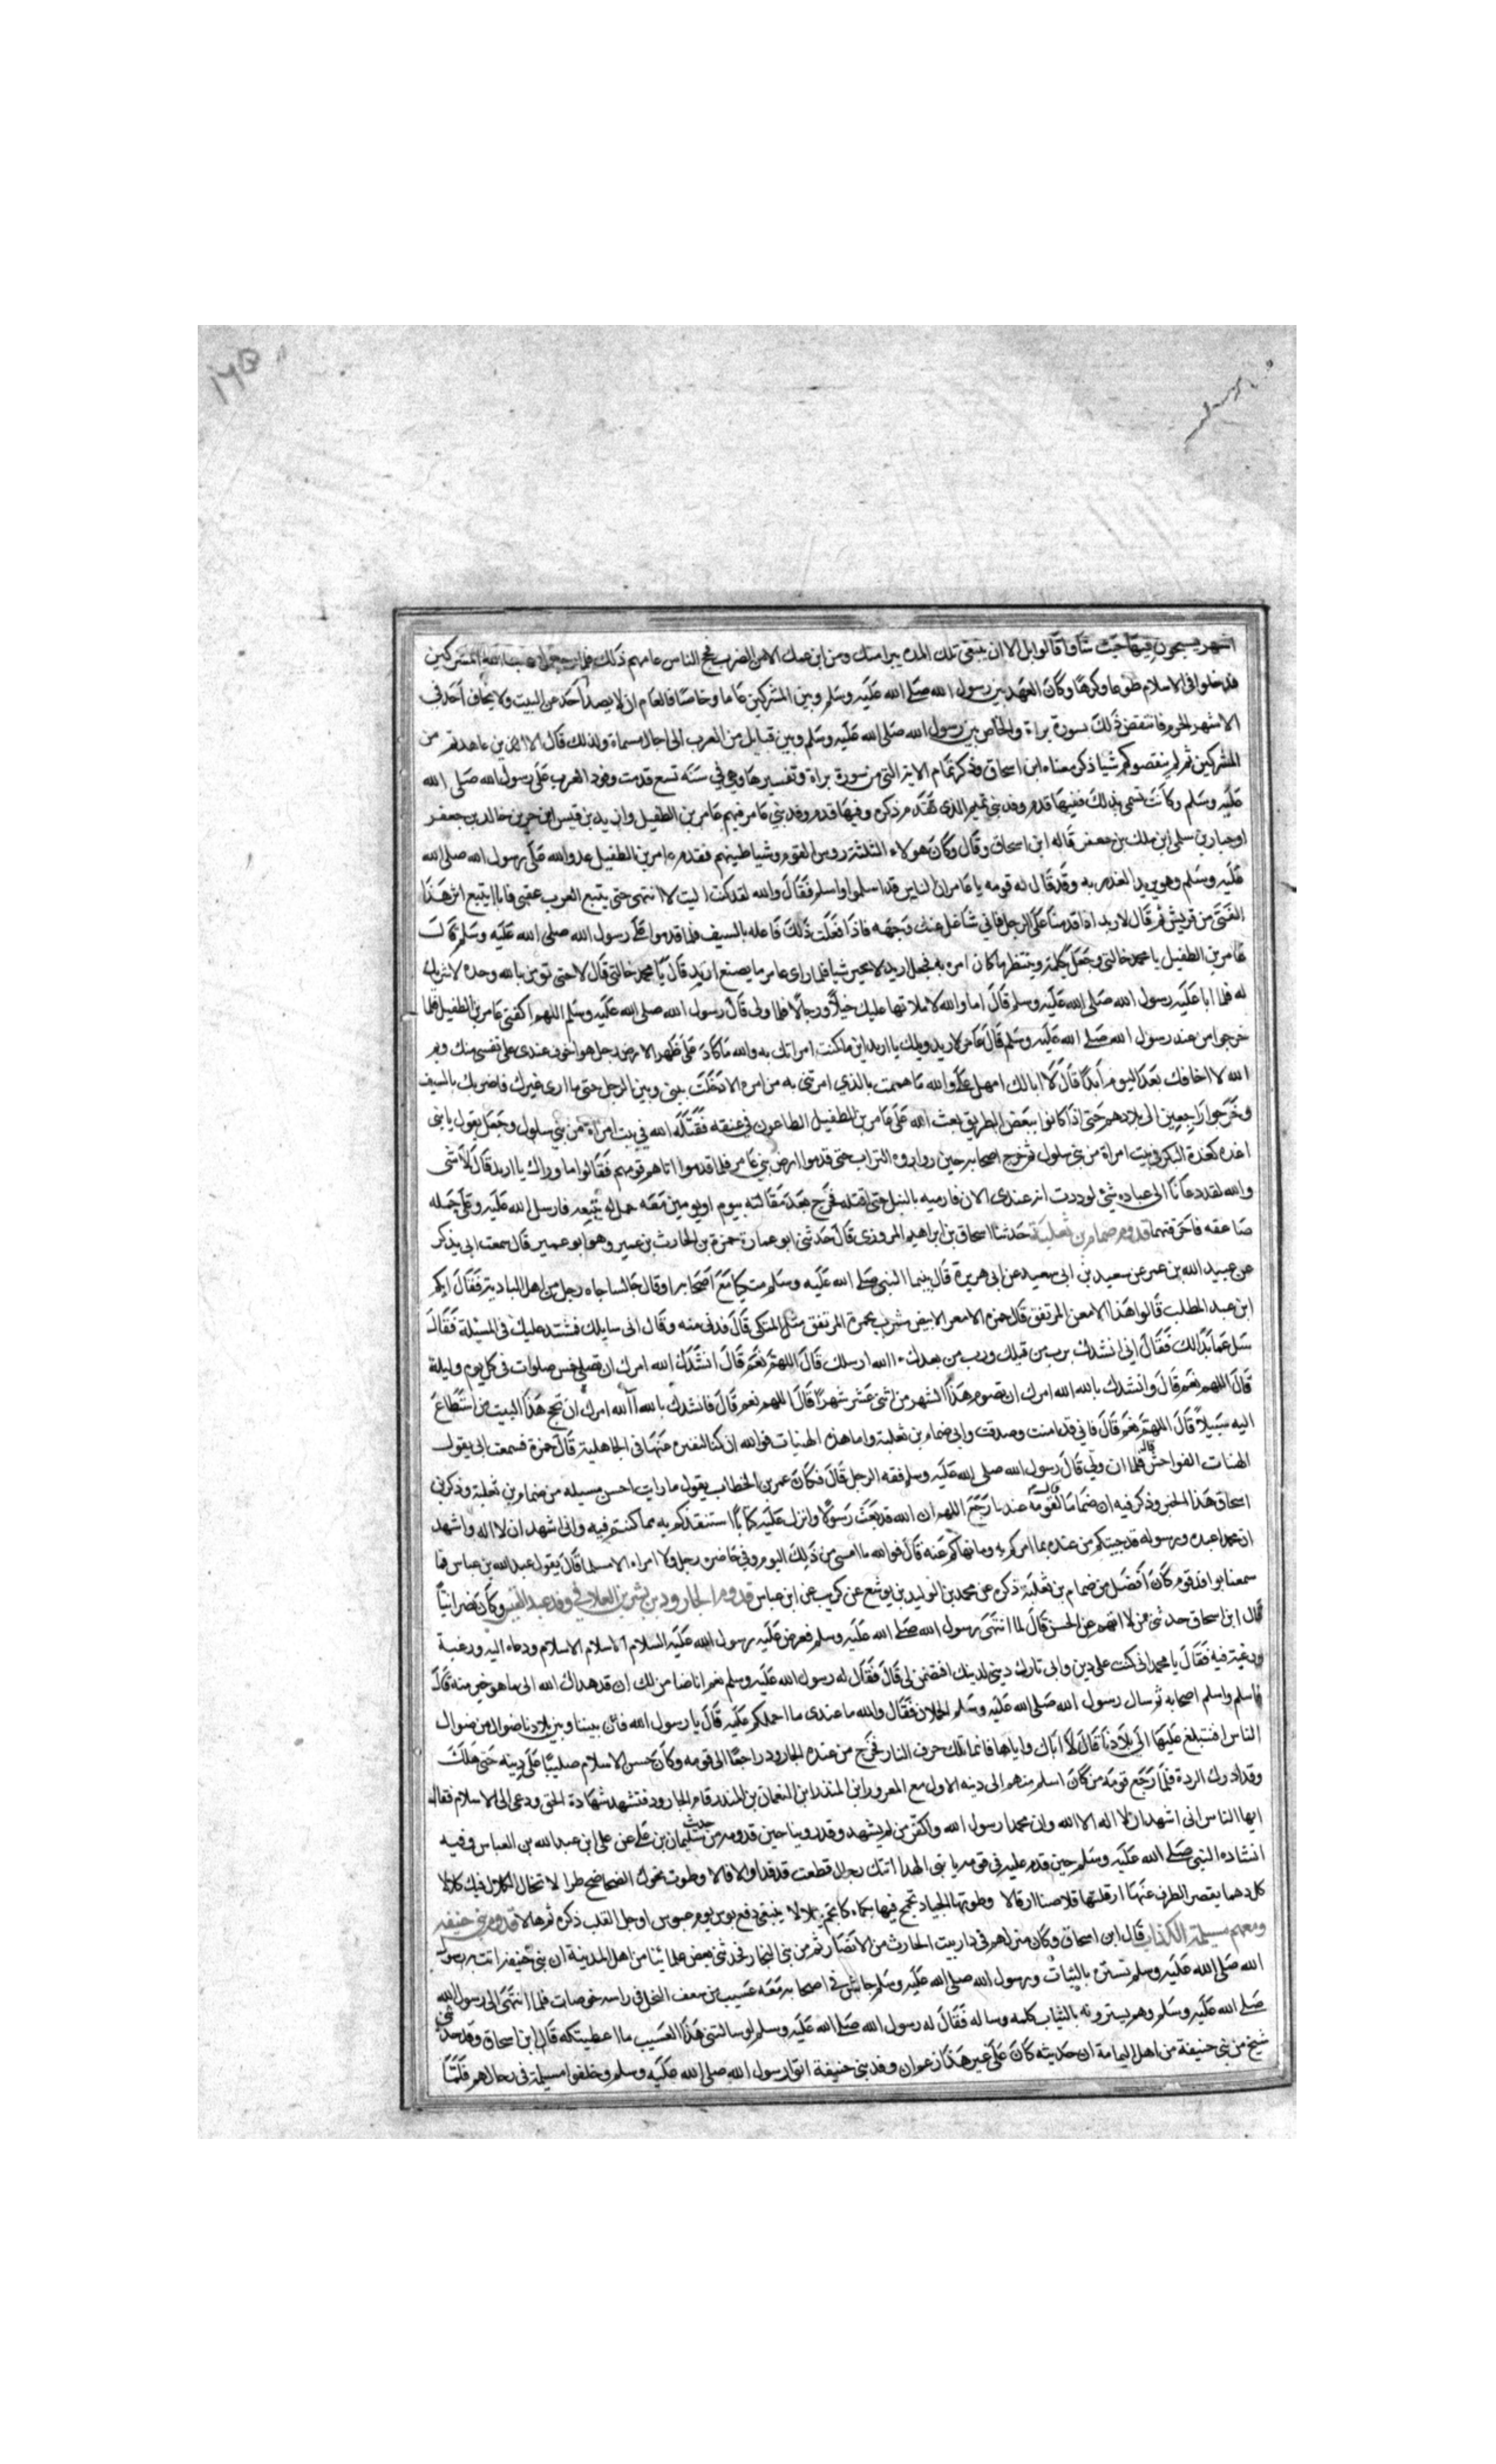 اشهر يسيحون فيها حيث شاؤا قالوا بل الان نبتغى تلك المدة نبرا منك ومن ابن عمك الا من الضرب فحج الناس عامهم ذلك فلما رجعوا المشركين
قد خلوا فى الاسلام طوعا وكرها وكان العهد بين رسول الله صلى الله عليه وسلم وبين المشركين عاما وخاصا فالعام ان لا يصد احد عن البيت ولا يخاف احد فى
الاشهر الحرم فانتقض ذلك بسورة براة والخاص بين رسول الله صلى الله عليه وسلم وبين قبايل من العرب الى اجال مسماة ولذلك قال الا الذين عاهدتم من
المشركين ثم لم ينقصوكم شيا ذكر معناه ابن اسحاق وذكر تمام الاية التى من سورة براة وتفسيرها وفي سنه تسع قدمت وفود العرب على رسول الله صلى الله
عليه وسلم وكانت تسمى بذلك ففيها قدم وفد بنى تميم الذى تقدم ذكره وفيها قدم وفد بني عامر فيهم عامر بن الطفيل واربد بن قيس ابن جزء بن خالد بن جعفر
اوجبار بن سلمى ابن ملك بن جعفر قاله ابن اسحاق وقال وكان هولاء الثلثة روس القوم وشياطينهم فقدم عامر بن الطفيل عدو الله على رسول الله صلى الله
عليه وسلم وهو يريد الغدر به وقد قال له قومه يا عامر ان الناس قد اسلموا فاسلم فقال والله لقد كنت اليت لا انتهى حتى يتبع العرب عقبى فانا اتبع اثر هذا
الفتى من قريش ثم قال لاربد اذا قدمنا على الرجل فاني شاغل عنك وجهه فاذا فعلت ذلك فاعله بالسيف فلما قدموا على رسول الله صلى الله عليه وسلم قالت
عامر بن الطفيل يا محمد خالنى وجعل يكلمه وينتظر ما كان امره به فجعل اربد لا يحير شيا فلما راى عامر ما يصنع اربد قال يا محمد خالنى قال لا حتى تومن بالله وحده لا شريك
له فلما ابا عليه رسول الله صلى الله عليه وسلم قال اما والله لاملانها عليك خيلا ورجالا فلما ولى قال رسول الله صلى الله عليه وسلم اللهم اكفنى عامر بن الطفيل فلما
خرجوا من عند رسول الله صلى الله عليه وسلم قال عامر لاربد ويلك يا اربد اين ما كنت امرتك به والله ما كان على ظهر الارض رجل هو اخوف عندى على نفسى منك وايم
الله لا اخافك بعد اليوم ابدا قال لا ابالك لا تعجل علي والله ما هممت بالذي امرتنى به من امره الا دخلت بيني وبين الرجل حتى ما ارى غيرك فاضربك بالسيف
وخرجوا راجعين الى بلادهم حتى اذا كانوا ببعض الطريق بعث الله على عامر بن الطفيل الطاعون في عنقه فقتله الله في بيت امراة من بني سلول وجعل يقول يا بنى
اغدة كغدة البكر في بيت امراة من بني سلول ثم خرج اصحابه حين رواروه التراب حتى قدموا ارض بني عامر فلما قدموا اتاهم قومهم فقالوا ما وراك يا اربد قال لا شى
والله لقد دعانا الى عباده شئ لوددت انه عندى الان فارميه بالنبل حتى اقتله فخرج بعد مقالته بيوم او يومين معه جمل له يتبعه فارسل الله عليه وعلى جمله
صاعقه فاحرقتهما قدوم ضمام بن ثعلبة حدثنا اسحاق بن ابراهيم المروزى قال حدثنى ابو عمارة حمزة بن الحارث بن عمير وهو ابو عمير قال سمعت ابى يذكر
عن عبيد الله بن عمر عن سعيد بن ابى سعيد عن ابى هريرة قال بينما النبى صلى الله عليه وسلم متكيا مع اصحابه او قال جالسا جاه رجل من اهل البادية فقال ايكم
ابن عبد المطلب قالوا هذا الامغر المرتفق قال حمزه الامغر الابيض مشرب بحمرة المرتفق مثل المتكى قال فدنى منه وقال انى سايلك فمشتد عليك فى المسيلة فقال
سل عما بدالك فقال اني انشدك برب من قبلك ورب من بعدك الله ارسلك قال اللهم نعم قال انشدك الله امرك ان نصلي خمس صلوات فى كل يوم وليلة
قال اللهم نعم قال وانشدك بالله الله امرك ان نصوم هذا الشهر من اثنى عشر شهرا قال اللهم نعم قال فانشدك بالله آلله امرك ان نحج هذا البيت من استطاع
اليه سبيلا قال اللهم نعم قال فاني قد امنت وصدقت واني ضمام بن ثعلبة واما هذه الهنيات فوالله ان كنا لنتنزه عنها فى الجاهلية قال حمزة فسمعت ابى يقول
الهنات الفواحش قال فلما ان ولي قال رسول الله صلى الله عليه وسلم فقه الرجل قال فكان عمر بن الخطاب يقول ما رايت احسن مسيله من ضمام بن ثعلبة وذكر بن
اسحاق هذا الخبر وذكر فيه ان ضماما قال لقومه عند ما رجع اللهم ان الله قد بعث رسولا وانزل عليه كتابا استنقذكم به مما كنتم فيه وانى اشهد ان لا اله واشهد
ان محمدا عبده ورسوله قد جيتكم من عنده بما امركم به وما نهاكم عنه قال فوالله ما امسى من ذلك اليوم وفي حاضره رجل ولا امراه الا مسلما قال يقول عبد الله بن عباس فما
سمعنا بوافد قوم كان افضل من ضمام بن ثعلبة ذكره عن محمد بن الوليد بن نويفع عن كريب عن ابن عباس قدوم الجارود بن بشر بن العلاء في وفد عبد القيس وكان نصرانيا
قال ابن اسحاق حدثنى من لا اتهم عن الحسن قال لما انتهى رسول الله صلى الله عليه وسلم فعرض عليه رسول الله عليه السلام الاسلام الاسلام ودعاه اليه ورغبة
ورغبة فيه فقال يا محمد انى كنت على دين وانى تارك دينى لدينك افتضمن لى قال فقال له رسول الله عليه وسلم نعم انا ضامن لك ان قد هداك الله الى ما هو خير منه قال
فاسلم واسلم اصحابه ثم سال رسول الله صلى الله عليه وسلم الحملان فقال والله ما عندى ما احملكم عليه قال يا رسول الله فان بيننا وبين بلادنا ضوال من ضوال
الناس افنتبلغ عليها الى بلادنا قال لا اياك واياها فانما تلك حرق النار فخرج من عنده الجارود راجعا الى قومه وكان حسن الاسلام صليبا على دينه حتى هلك
وقد ادرك الردة فلما رجع قومه من كان اسلم منهم الى دينه الاول مع المعرور ابن المنذر ابن النعمان بن المنذر قام الجارود فتشهد شهادة الحق ودعى الى الاسلام فقال
ايها الناس انى اشهد ان لا اله الا الله وان محمدا رسول الله واكفر من لم يشهد وقد روينا حين قدومه من حديث سليمان بن علي عن على ابن عبد الله بن العباس وفيه
انشاده النبى صلى الله عليه وسلم حين قدم عليه فى قومه يا نبى الهدا اتتك رجال قطعت فدفدا والا فالا وطوت نحوك الضحاضح طرا لا تخال الكلال فيك كلالا
كل دهما يقصر الطرف عنها ارقلتها قلاصنا ارقالا وطوتها الجياد تجمح فيها بكماه كانجم تتلالا يبتغى دفع بوس يوم عبوس اوجل القلب ذكره ثم هالا قدوم بنى حنيفه
ومعهم مسيلمة الكذاب قال ابن اسحاق وكان منزلهم فى دار بيت الحارث من الانصار ثم من بنى النجار فحدثنى بعض علمائنا من اهل المدينة ان بنى حنيفة اتت به رسول
الله صلى الله عليه وسلم تستره بالثياب ورسول الله صلى الله عليه وسلم جالس في اصحابه معه عسيب من سعف النخل فى راسه خوصات فلما انتهى الى رسول الله
صلى الله عليه وسلم وهم يسترونه بالثياب كلمه وساله فقال له رسول الله صلى الله عليه وسلم لو سالتنى هذا العسيب ما اعطيتكه قال ابن اسحاق وقد حدثنى
شيخ من بنى حنيفة من اهل اليمامة ان حديثه كان على غير هذا زعم ان وفد بنى حنيفة اتوا رسول الله صلى الله عليه وسلم وخلفوا مسيلمة فى رحالهم فلما